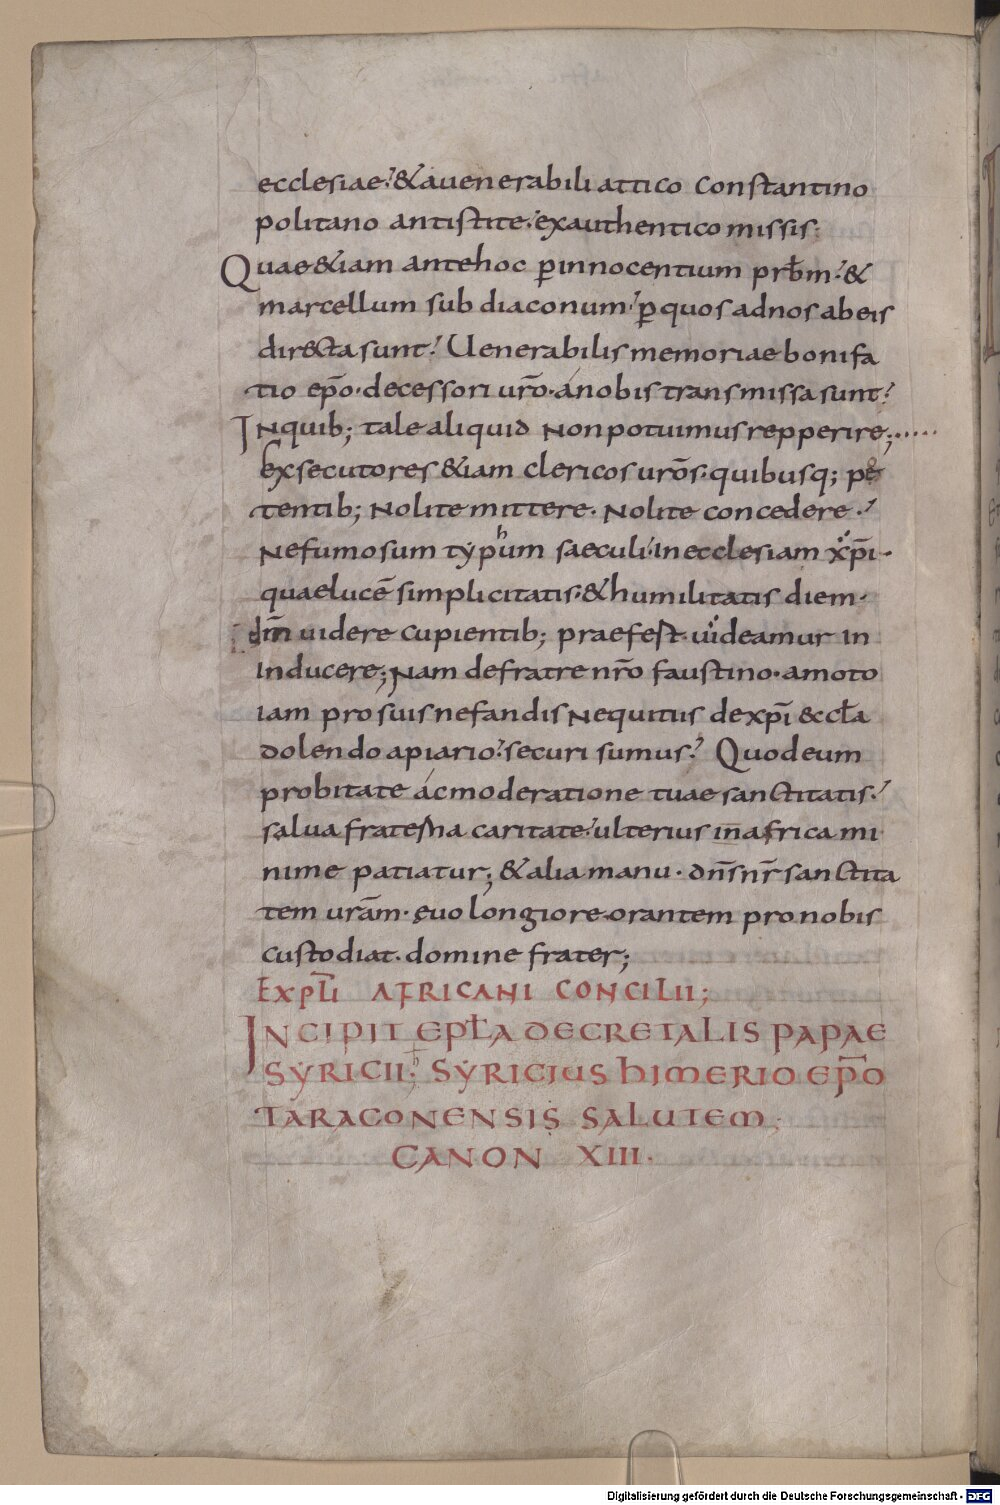 ecclesiae; & auenerabili attico constantino
politano antistite; exauthentico missis:
Quae &iam antehoc p̱innocentium prb̄m; &
marcellum sub diaconum; p̱quos adnos abeis
dir&ta sunt; Uenerabilis memoriae bonifa
tio ep̄o· decessori ur̄o· ánobis transmissa sunt;
Inquib; tale aliquid non potuimus repperire;.....
Exsecutores &iam clericos ur̄os· quibusq; pe
tentib; nolite mittere· nolite concedere·
Nefumosum typhum saeculi; in ecclesiam xp̄i·
quae lucē simplicitatis· & humilitatis diem·
dm̄ uidere cupientib; praefest· uideamur in
inducere; Nam defratre nr̄o faustino· amoto
iam pro suis nefandis nequitiis dexp̄i &ccl̄a
dolendo apiario; securi sumus; Quodeum
probitate ácmoderatione tuae sanctitatis;
salua fraterna caritate; ulterius in africa mi
nime patiatur; & alia manu· dn̄s nr̄ sanctita
tem ur̄am· euo longiore orantem pro nobis
custodiat· domine frater;
EXPL̄I AFRICANI CONCILII;
INCIPIT EPL̄A DECRETALIS PAPAE
SYRICII; SYRICIUS HIMERIO EP̄O
TARACONENSIS SALUTEM;
CANON XIII·
Digitalisierung gefördert durch die Deutsche Forschungsgemeinschaft - DFG